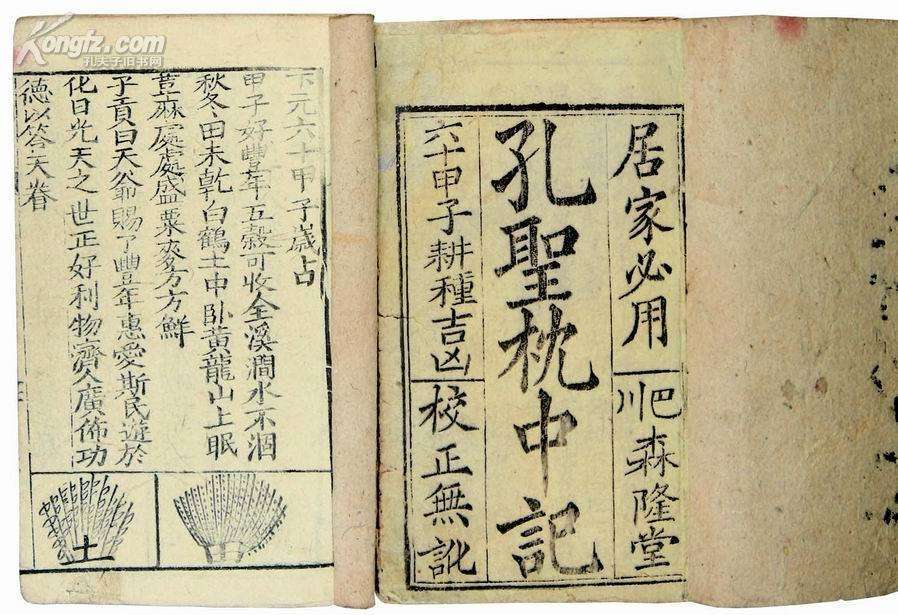 居家必用
巴川森隆堂
孔聖枕中記
六十甲子耕種吉凶
校正無訛
下元六十甲子歲占
甲子好豐年五穀可收全溪澗水不涸
秋冬田未乾白鶴土中卧黃龍山上眠
荳麻處處盛粟麥方方鮮
子貢曰天爺賜了豐年惠愛斯民遊於
化日光天之世正好利物濟人廣佈功
德以答天眷
田
土
Kongfz.com
孔夫子旧书网